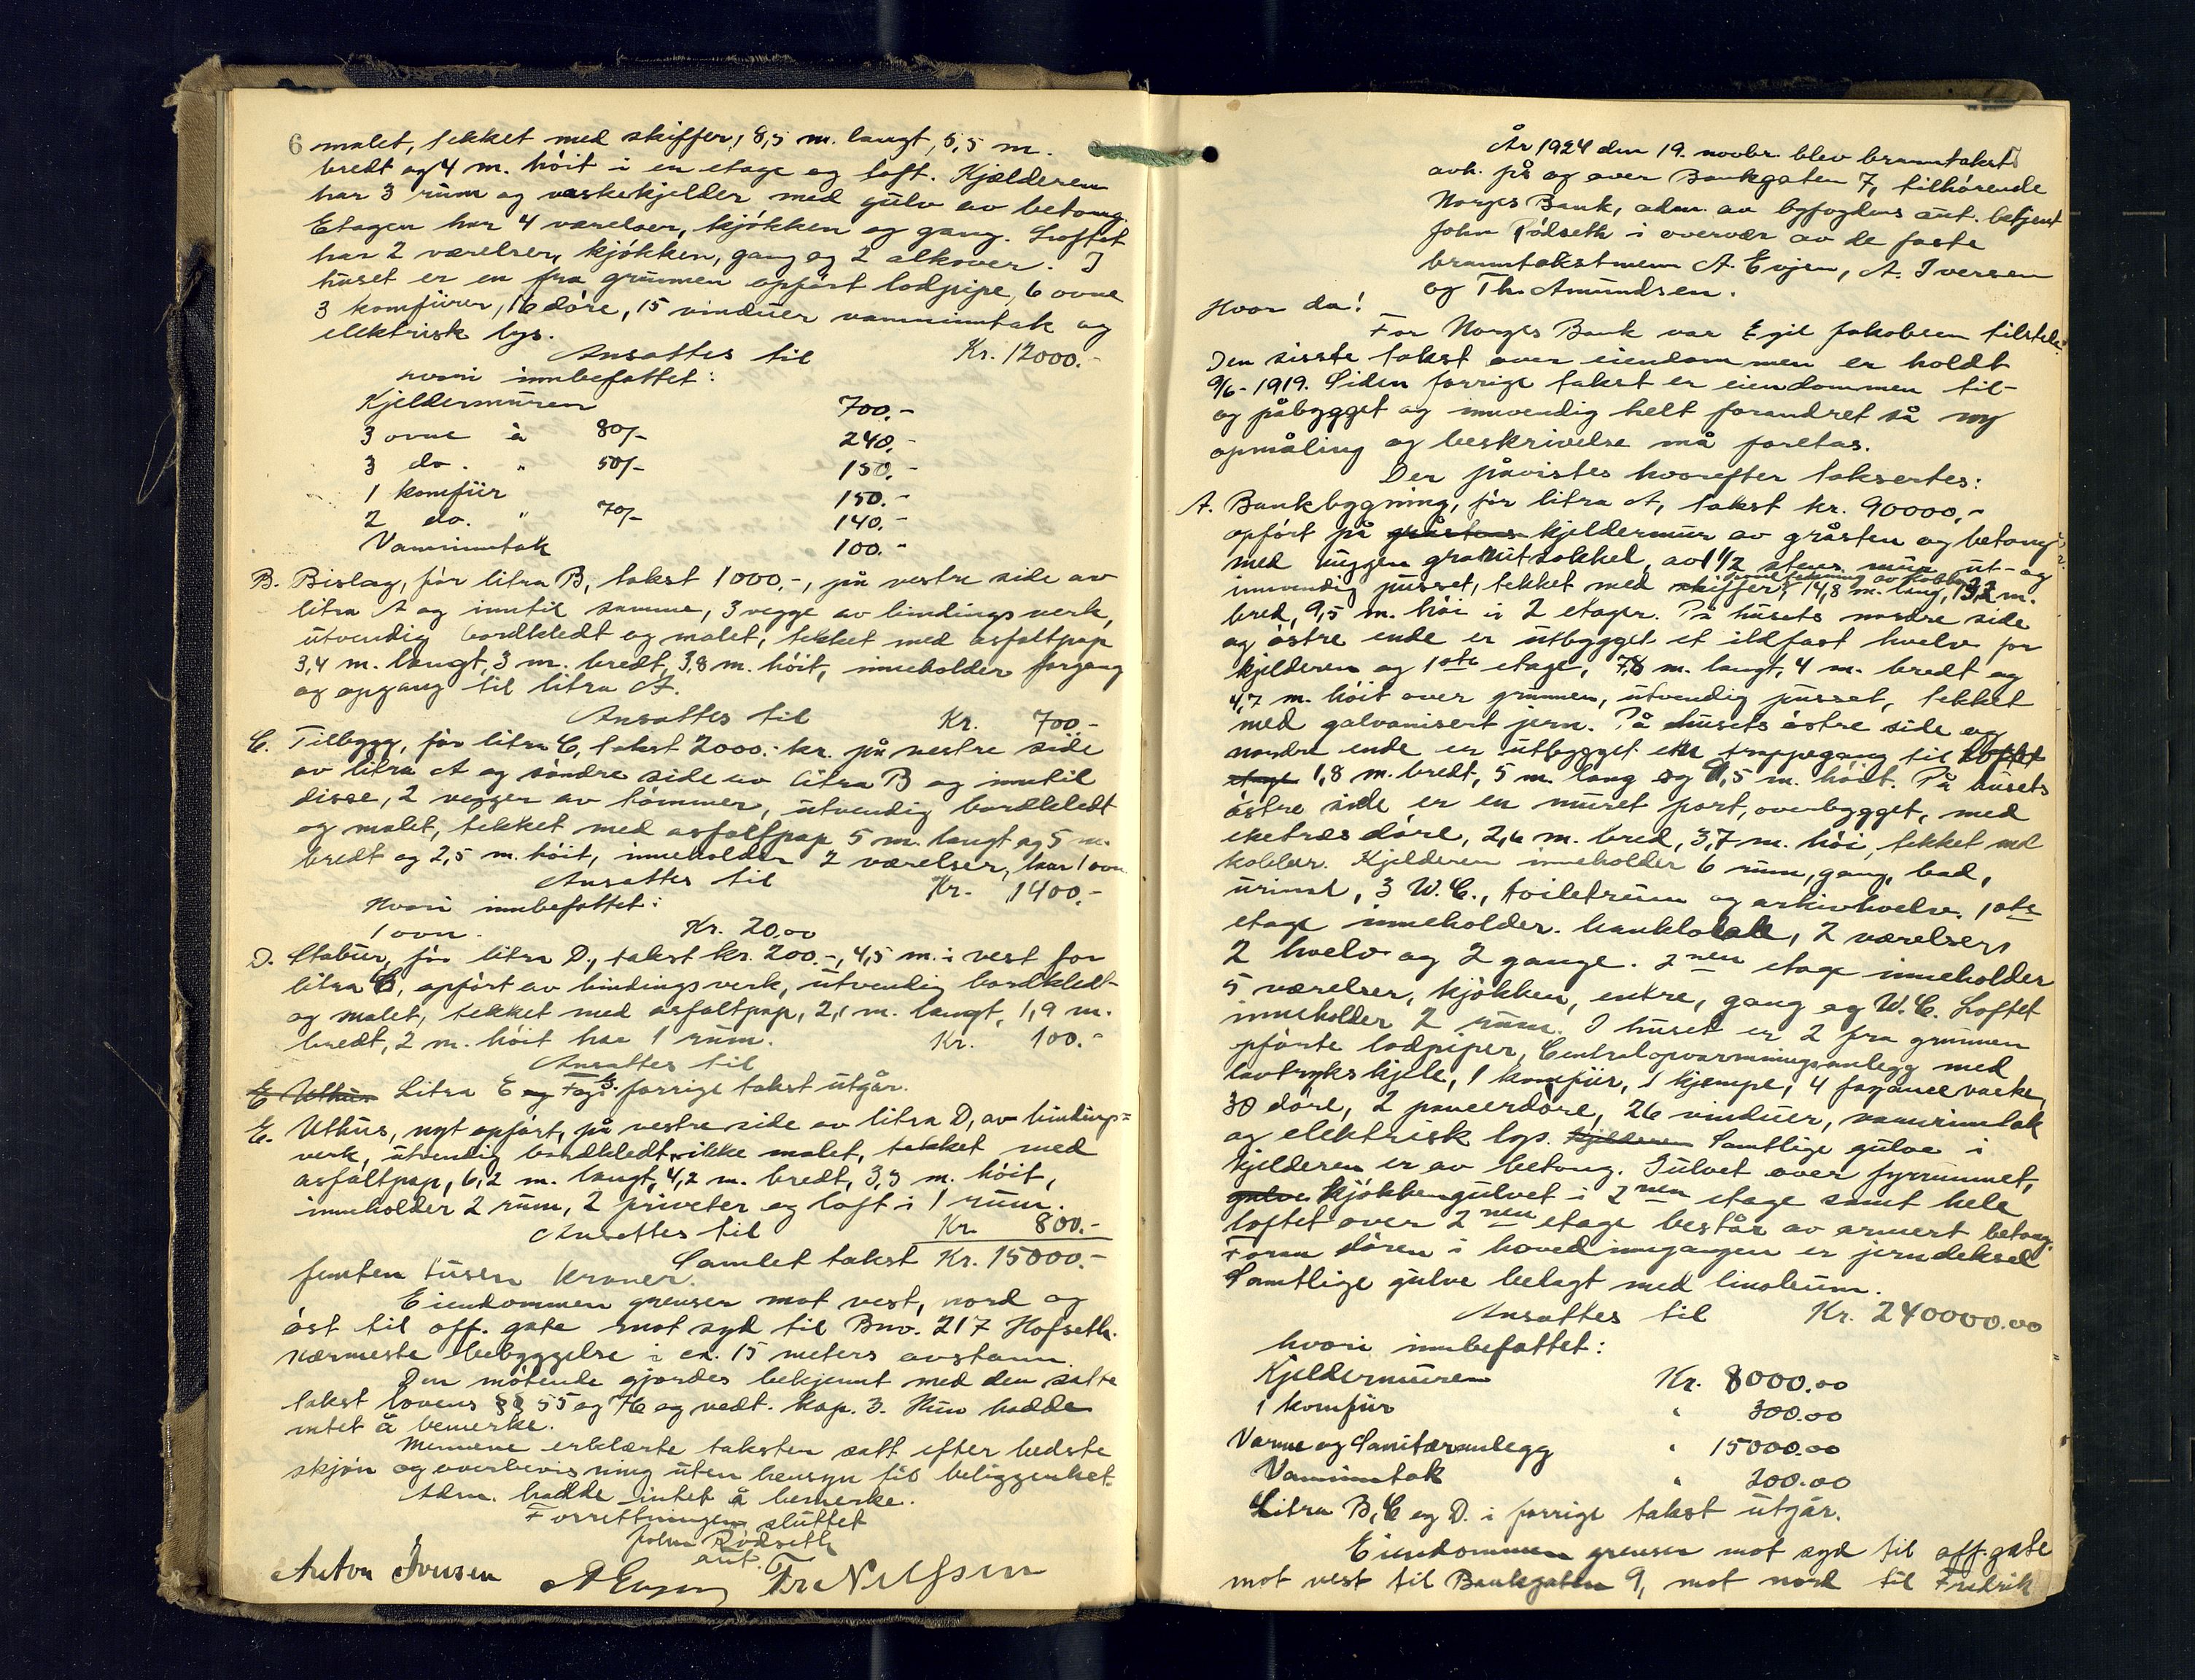 6 malet, tekket med skiffer, 8,5 m. langt, 5,5 m.
bredt og 4 m. höit i en etage og loft. Kjælderen
har 3 rum og vaskekjelder med gulv av betong.
Etagen har 4 værelser, kjökken og gang. Loftet
har 2 værelser, kjökken, gang og 2 alkover. I
huset er en fra grunnen opfört lodpipe, 6 ovne
3 komfürer, 16 döre, 15 vindüer vanninntak og
elektrisk lys.
Ansattes til Kr. 12000.-
hvori innbefattet:
Kjeldermüren 700.-
3 ovne à 80/- 240.-
3 do. " 50/- 150.-
1 komfür 150.-
2 do. " 70/- 140.-
Vanninntak 100.-
B. Bislag, för litra B, takst 1000.-, på vestre side av
litra A og inntil samme, 3 vegge av bindingsverk,
ütvendig bordkledt og malet, tekket med asfaltpap
3,4 m. langt, 3 m. bredt, 3,8 m. höit, inneholder forgang
og opgang til litra A.
Ansattes til Kr. 700.-
C. Tilbygg, för litra C, takst 2000.- kr. på vestre side
av litra A og söndre side av litra B og inntil
disse, 2 vegger av tömmer, ütvendig bordkledt
og malet, tekket med asfaltpap 5 m. langt og 5 m.
bredt og 2,5 m. höit, inneholder 2 værelser, har 1 ovn
Ansattes til Kr. 1400.-
Hvori innbefattet:
1 ovn. Kr. 20.00
D. Stabür, för litra D., takst kr. 200.-, 4,5 m. i vest for
litra C, opfört av bindingsverk, ütvendig bordkledt
og malet, tekket med asfaltpap, 2,1 m. langt, 1,9 m.
bredt, 2 m. höit har 1 rüm. Kr. 100.-
Ansattes til
E Uthus Litra E og F og G. forrige takst ütgår.
E. Uthüs, nyt opfört, på vestre side av litra D, av bindings=
verk, ütvendig bordkledt, ikke malet, tekket med
asfaltpap, 6,2 m. langt, 4,2 m. bredt, 3,5 m. höit,
inneholder 2 rüm, 2 priveter og loft i 1 rüm.
Ansattes til Kr. 800.-
Samlet takst Kr. 15000.-
femten tüsen kroner.
Eiendommen grenser mot vest, nord og
öst til off. gate mot syd til Bnv. 217 Hofseth.
Nærmeste bebyggelse i ca. 15 meters avstann.
Den mötende gjordes bekjennt med den satte
takst lovens §§ 55 og 76 og vedt. kap. 3. Hün hadde
intet å bemerke.
Mennene erklærte taksten satt efter bedste
skjön og overbevisning üten hensyn til beliggenhet.
Adm. hadde intet å bemerke.
Forrettningen slüttet
John Rödseth
aut.
Anton Iversen A Evjen Fr Nilssen
År 1924 den 19. novbr. blev branntakst
avh. på og over Bankgaten 7, tilhörende
Norges Bank, adm. av byfogdens aüt. betjent
John Rödseth i overvær av de faste
branntakstmenn A. Evjen, A. Iversen
og Th. Amündsen.
Hvor da!
For Norges Bank var Egil Jakobsen tilstede.
Den sisste takst over eiendommen er holdt
9/6-1919. Siden forrige takst er eiendommen til-
og påbygget og innvendig helt forandret så ny
opmåling og beskrivelse må foretas.
Der påvistes hvorefter taksertes:
A. Bankbygning, för litra A, takst kr. 90000,-
opfört på gråstens kjeldermür av gråsten og betong
med huggen granittsokkel, av 1 1/2 stens mür, üt- og
innvendig pusset, tekket med skiffer, 14,8 m. lang, 13,2 m.
bred, 9,5 m. höi i 2 etager. På hüsets nordre side
og östre ende er ütbygget et ildfast hvelv for
kjelderen og 1ste etage, 7,8 m. langt, 4 m. bredt og
4,7 m. höit over grunnen, ütvendig püsset, tekket
med galvanisert jern. På hüsets östre side og
nordre ende er ütbygget en trappegang til loftet
etage 1,8 m. bredt, 5 m. lang og 9,5 m. höit. På hüsets
östre side er en müret port, overbygget, med
eketræs döre, 2,6 m. bred, 3,7 m. höi, tekket med
kobber. Kjelderen inneholder 6 rüm, gang, bad,
ürinal, 3 W.C., toiletrüm og arkivhvelv. 1ste
etage inneholder. banklokale, 2 værelser,
2 hvelv og 2 gange. 2nen etage inneholder
5 værelser, kjökken, entre, gang og W.C. Loftet
inneholder 2 rüm. I hüset er 2 fra grünnen
opförte lodpiper, Centralopvarmningsanlegg med
lavtrykskjele, 1 komfür, 1 kjempe, 4 fayance vaske,
30 döre, 2 pancerdöre, 26 vindüer, vanninntak
og elektrisk lys. Kjelderen Samtlige gülve i
kjelderen er av betong. Gülvet over fyrrummet,
gulve kjökkengülvet i 2nen etage samt hele
loftet over 2nen etage består av armert betong.
Foran dören i hovedinngangen er jerndeksel
Samtlige gülve belagt med linoleüm.
Ansattes til Kr. 240000.00
hvori innbefattet:
Kjeldermüren Kr. 8000.00
1 komfür " 300.00
Varme og Sanitæranlegg " 15000.00
Vanninntak " 200.00
Litra B, C og D. i forrige takst ütgår.
Eiendommen grenser mot syd til off. gate
mot vest til Bankgaten 9, mot nord til Fredrik